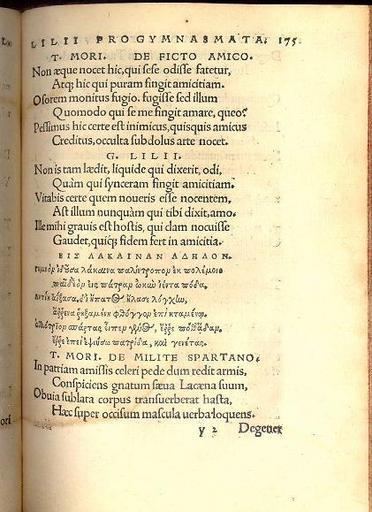 LILII PROGYMNASMATA. 175
T. MORI. DE FICTO AMICO.
Non æque nocet hic, qui sese odisse fatetur,
Atq; hic qui puram fingit amicitiam.
Osorem monitus fugio. fugisse sed illum
Quomodo qui se me fingit amare, queo?
Pessimus hic certe est inimicus, quisquis amicus
Creditus, occulta subdolus arte nocet.
G. LILII.
Non is tam lædit, liquide qui dixerit, odi,
Quàm qui synceram fingit amicitiam.
Vitabis certe quem noueris esse nocentem,
Ast illum nunquàm qui tibi dixit, amo.
Ille mihi grauis est hostis, qui dam nocuisse
Gaudet, quicq; fidem fert in amicitia.
ΕΙΣ ΛΑΚΑΙΝΑΝ ΑΔΗΛΟΝ.
λάκαινα παλίντροπον ἐκ πολέμοιο
πάτραν ὠκὺν πόδα,
πατρίδα, καὶ γενέτας.
T. MORI. DE MILITE SPARTANO.
In patriam amissis celeri pede dum redit armis,
Conspiciens gnatum sæua Lacæna suum,
Obuia sublata corpus transuerberat hasta,
Hæc super occisum mascula uerba loquens.
y 2 Degener